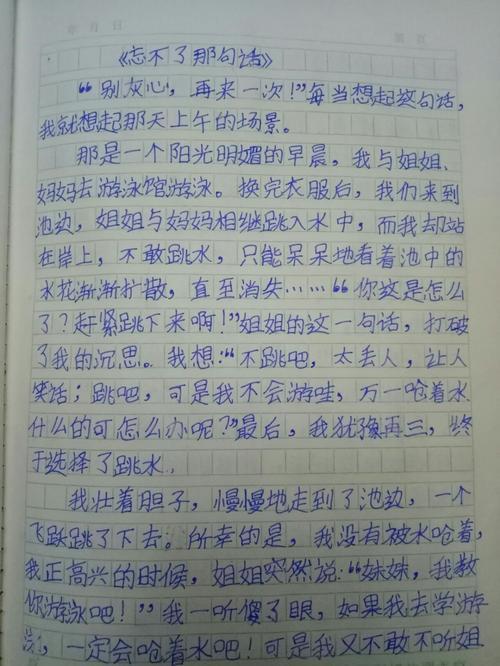 年 月 日
第 页
《忘不了那句话》
“别灰心，再来一次！”每当想起这句话，
我就想起那天上午的场景。
那是一个阳光明媚的早晨，我与姐姐、
妈妈去游泳馆游泳。换完衣服后，我们来到
池边，姐姐与妈妈相继跳入水中，而我却站
在岸上，不敢跳水，只能呆呆地看着池中的
水花渐渐扩散，直至消失……“你这是怎么
了？赶紧跳下来啊！”姐姐的这一句话，打破
了我的沉思。我想：“不跳吧，太丢人，让人
笑话；跳吧，可是我不会游哇，万一呛着水
什么的可怎么办呢？”最后，我犹豫再三，终
于选择了跳水.
我壮着胆子，慢慢地走到了池边，一个
飞跃跳了下去。所幸的是，我没有被水呛着，
我正高兴的时候，姐姐突然说：“妹妹，我教
你游泳吧！”我一听傻了眼，如果我去学游
泳，一定会呛着水吧！可是我又不敢不听姐